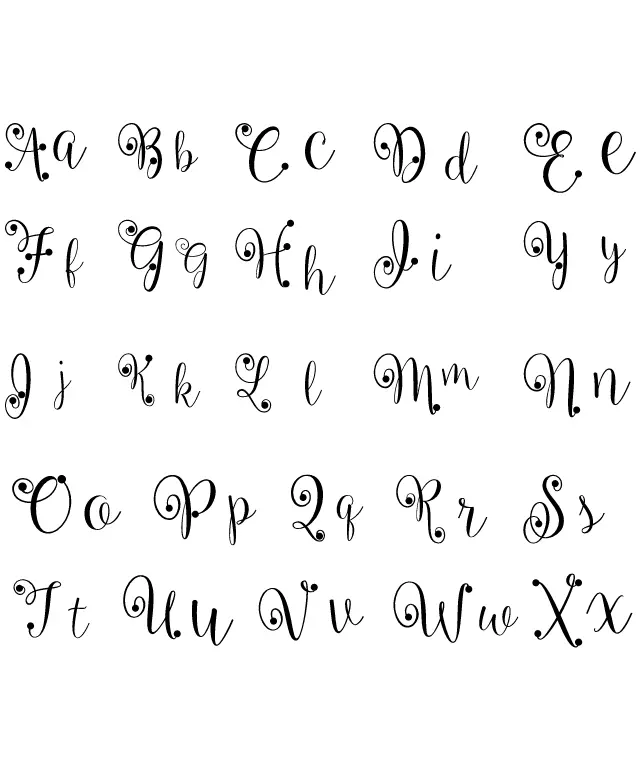 Aa Bb Cc Dd Ee
Ff Gg Hh Ii Yy
Jj Kk Ll Mm Nn
Oo Pp Qq Rr Ss
Tt Uu Vv Ww Xx